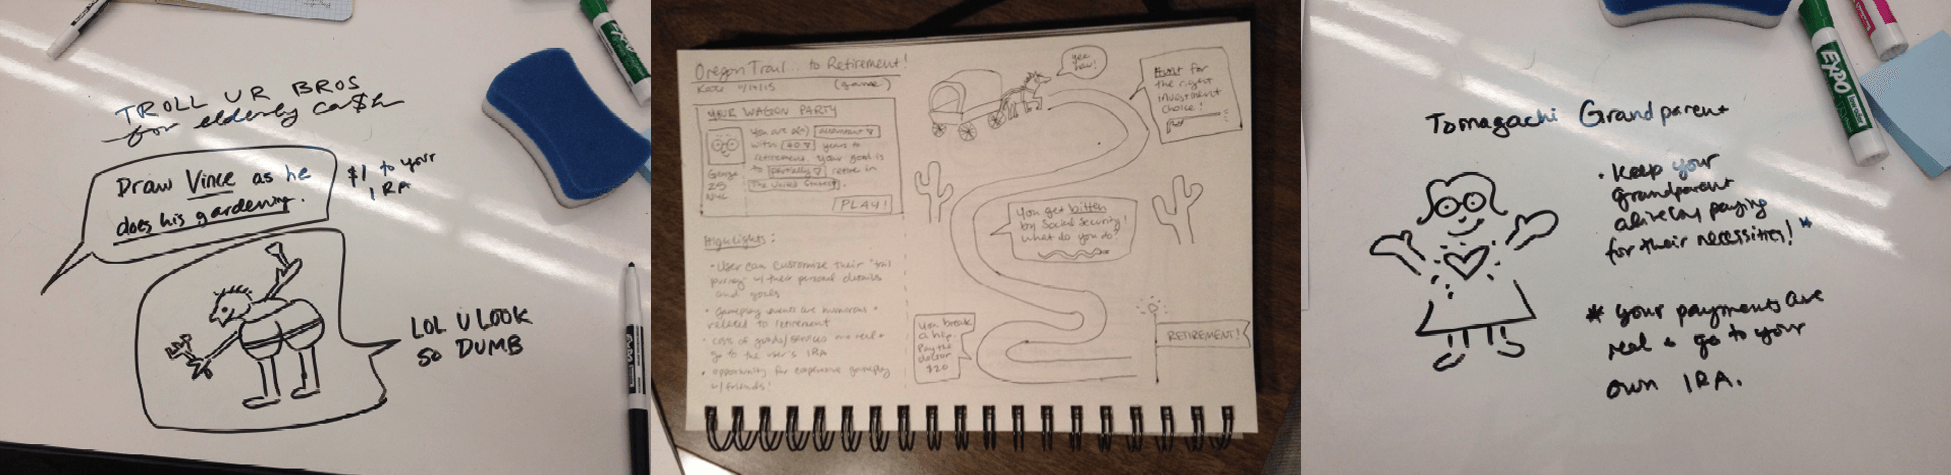 TROLL UR BROS
for elderly ca$h
Draw Vince as he
does his gardening.
$1 to your
IRA
LOL U LOOK
SO DUMB
EXPO
Oregon Trail... to Retirement!
Kate 11/10/15 (game)
YOUR WAGON PARTY
You are a(n) accountant
with 40 years to
retirement. Your goal is
to partially retire in
The United States.
George
25
NYC
PLAY!
Highlights:
• User can customize their "trail
party" w/ their personal details
and goals
• Gameplay events are humorous +
related to retirement
• Costs of goods/services are real +
go to the user's IRA
• opportunity for expansive gameplay
w/ friends!
Yee
haw!
Hunt for
the right
investment
choice!
You get bitten
by Social Security!
What do you do?
You break
a hip.
Pay the
doctor
$20
RETIREMENT!
Tomagachi Grandparent
• Keep your
grandparent
alive by paying
for their necessities! *
* your payments are
real + go to your
own IRA.
EXPO